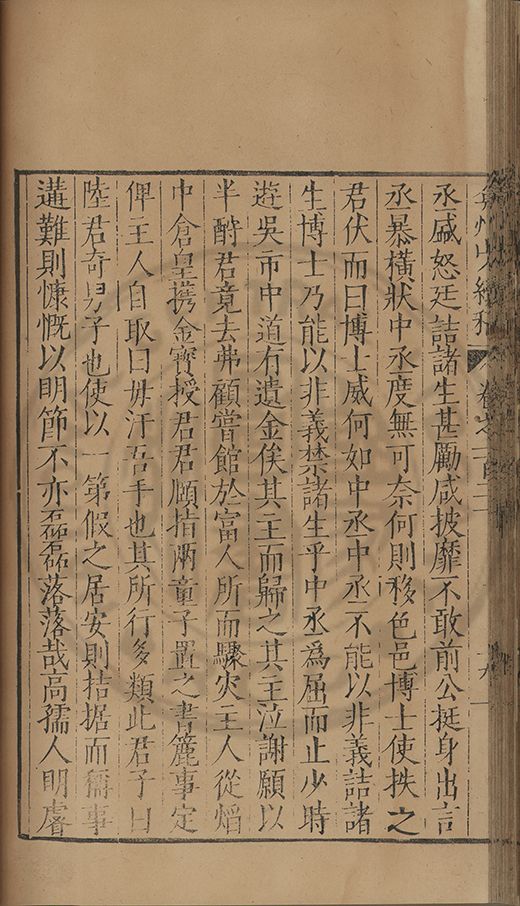 丞盛怒廷詰諸生甚勵咸披靡不敢前公挺身出言
丞暴橫狀中丞度無可奈何則移色邑博士使抶之
君伏而曰博士威何如中丞中丞不能以非義詰諸
生博士乃能以非義禁諸生乎中丞爲屈而止少時
遊吳市中道有遺金俟其主而歸之其主泣謝願以
半酧君竟去弗顧嘗館於富人所而驟火主人從熖
中倉皇携金寶授君君頤指兩童子置之書簏事定
俾主人自取曰毋汙吾手也其所行多類此君子曰
陸君奇男子也使以一第假之居安則拮据而籌事
遘難則慷慨以明節不亦磊磊落落哉高孺人明睿